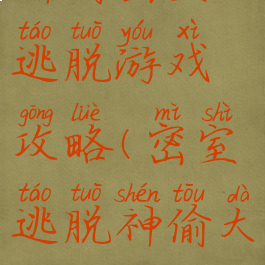 táo tuō yóu xì
逃脱游戏
gōng lüè mì shì
攻略(密室
táo tuō shén tōu dà
逃脱神偷大